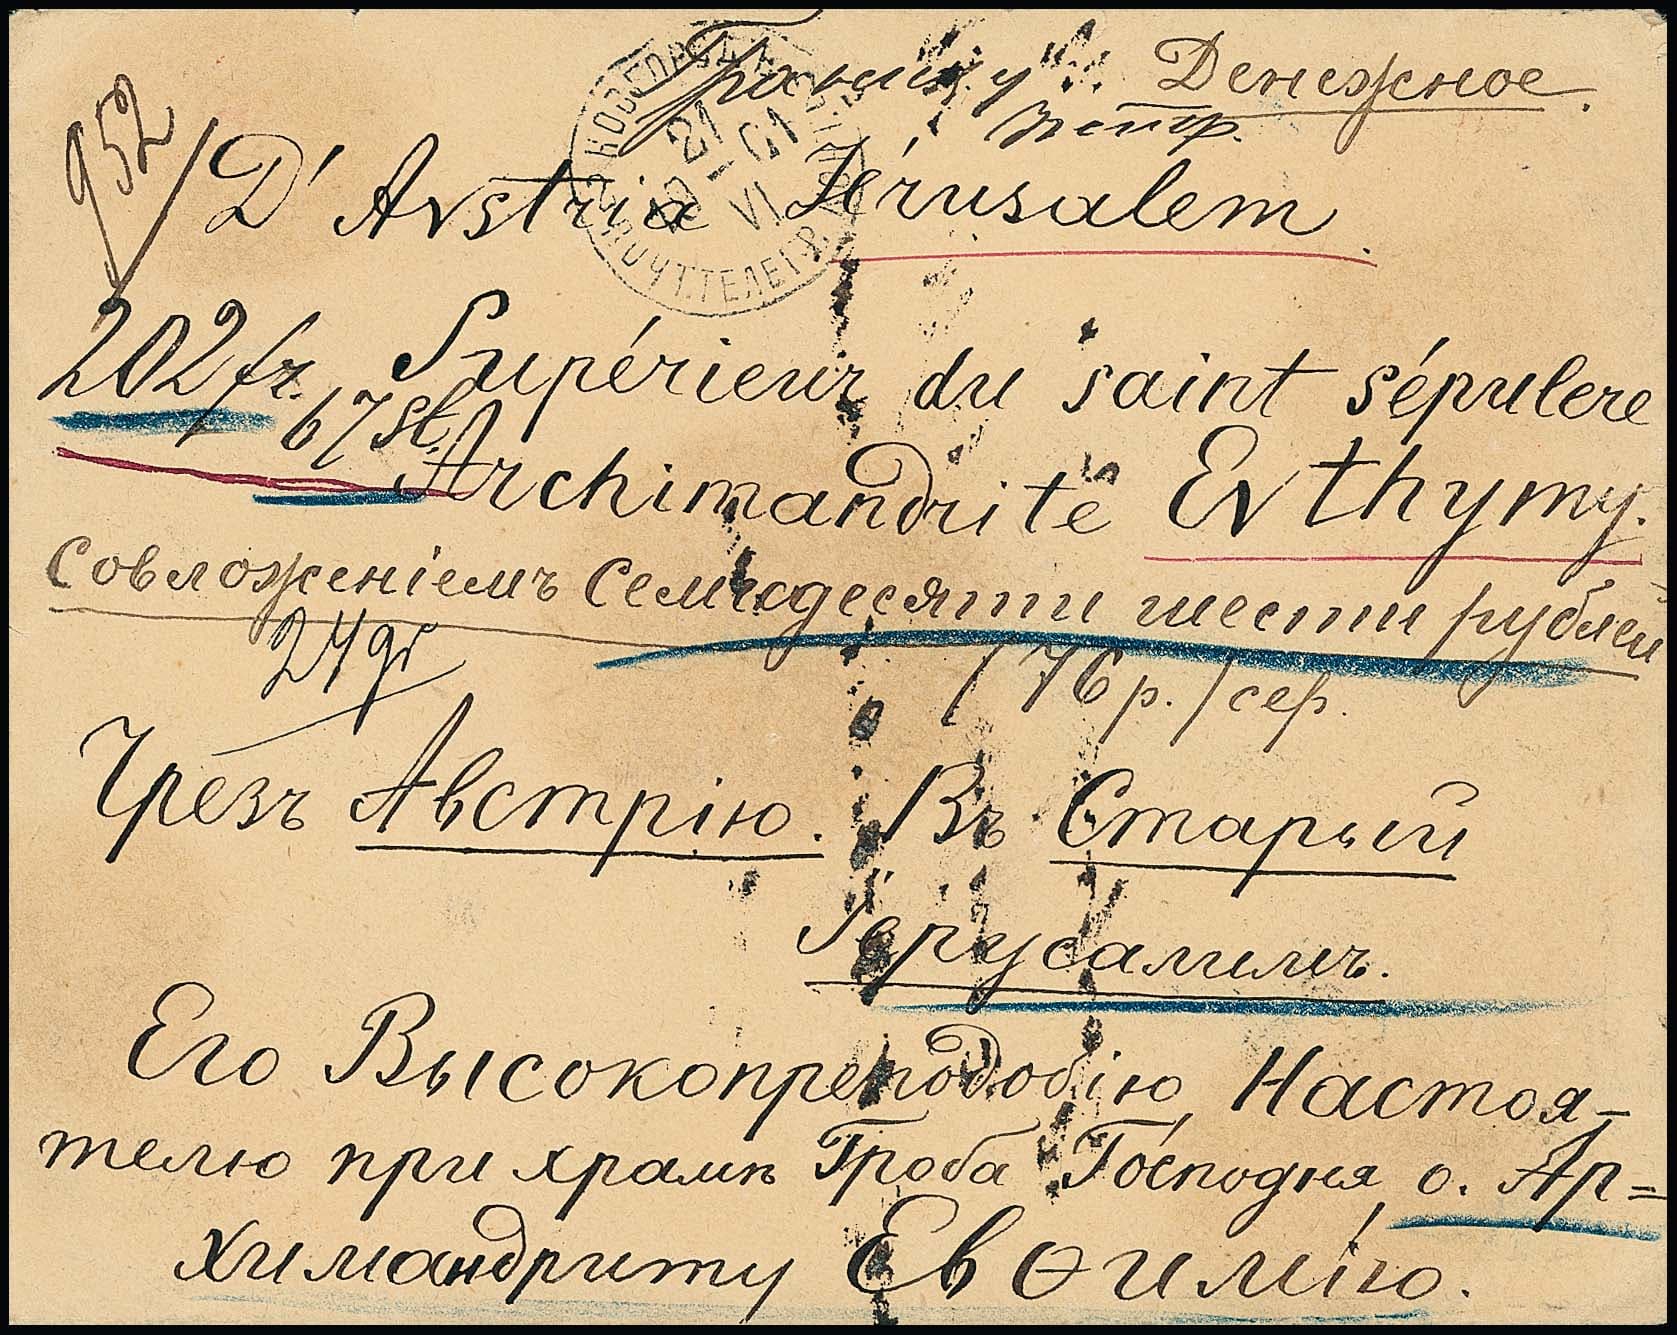 Денежное.
952
D' Avstria Jérusalem.
202 fr. Supérieur du saint sépulere
67 st.
Archimandrite Evthymy.
Совложеніемъ Семидесяти шести рублей
24 gr
/76 р./ сер.
Чрезъ Австрію. Въ Старый
Іерусалимъ.
Его Высокопреподобію Настоя-
телю при храмѣ Гроба Господня о. Ар=
химандриту Евѳимію.
НОВГОРОД
21
VI
ПОЧТ. ТЕЛЕГР.